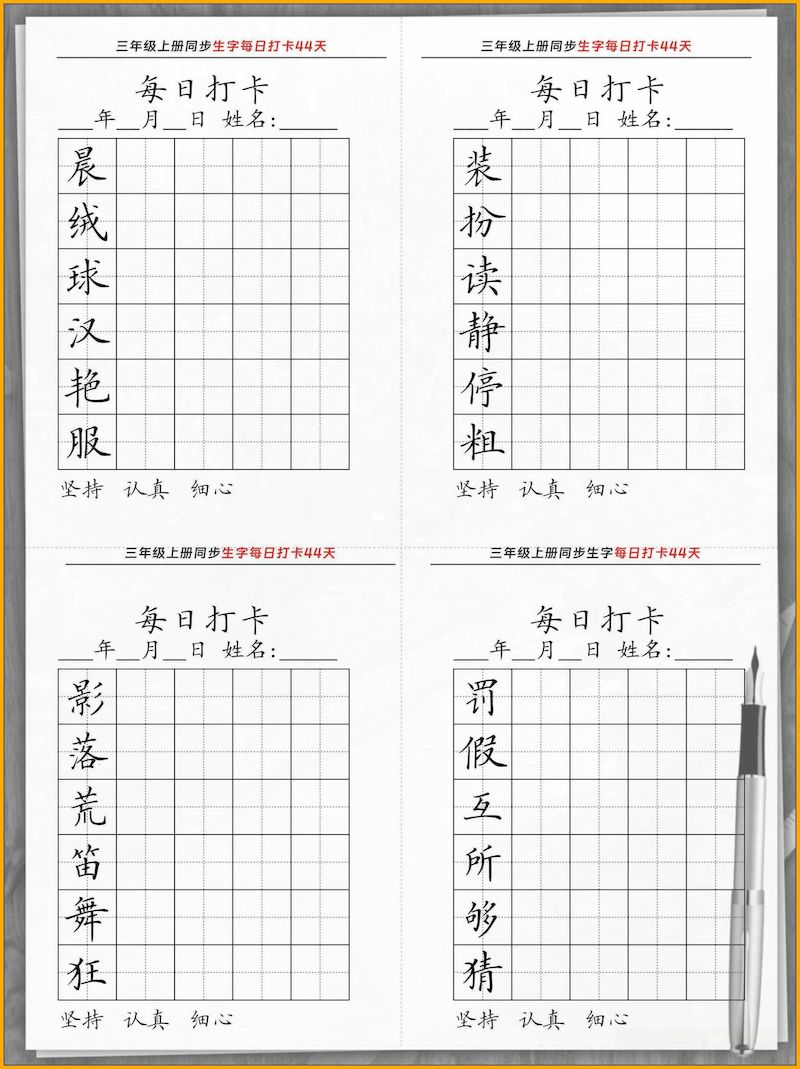 三年级上册同步生字每日打卡44天
每日打卡
___年__月__日 姓名:_____
晨
绒
球
汉
艳
服
坚持 认真 细心
三年级上册同步生字每日打卡44天
每日打卡
___年__月__日 姓名:_____
装
扮
读
静
停
粗
坚持 认真 细心
三年级上册同步生字每日打卡44天
每日打卡
___年__月__日 姓名:_____
影
落
荒
笛
舞
狂
坚持 认真 细心
三年级上册同步生字每日打卡44天
每日打卡
___年__月__日 姓名:_____
罚
假
互
所
够
猜
坚持 认真 细心